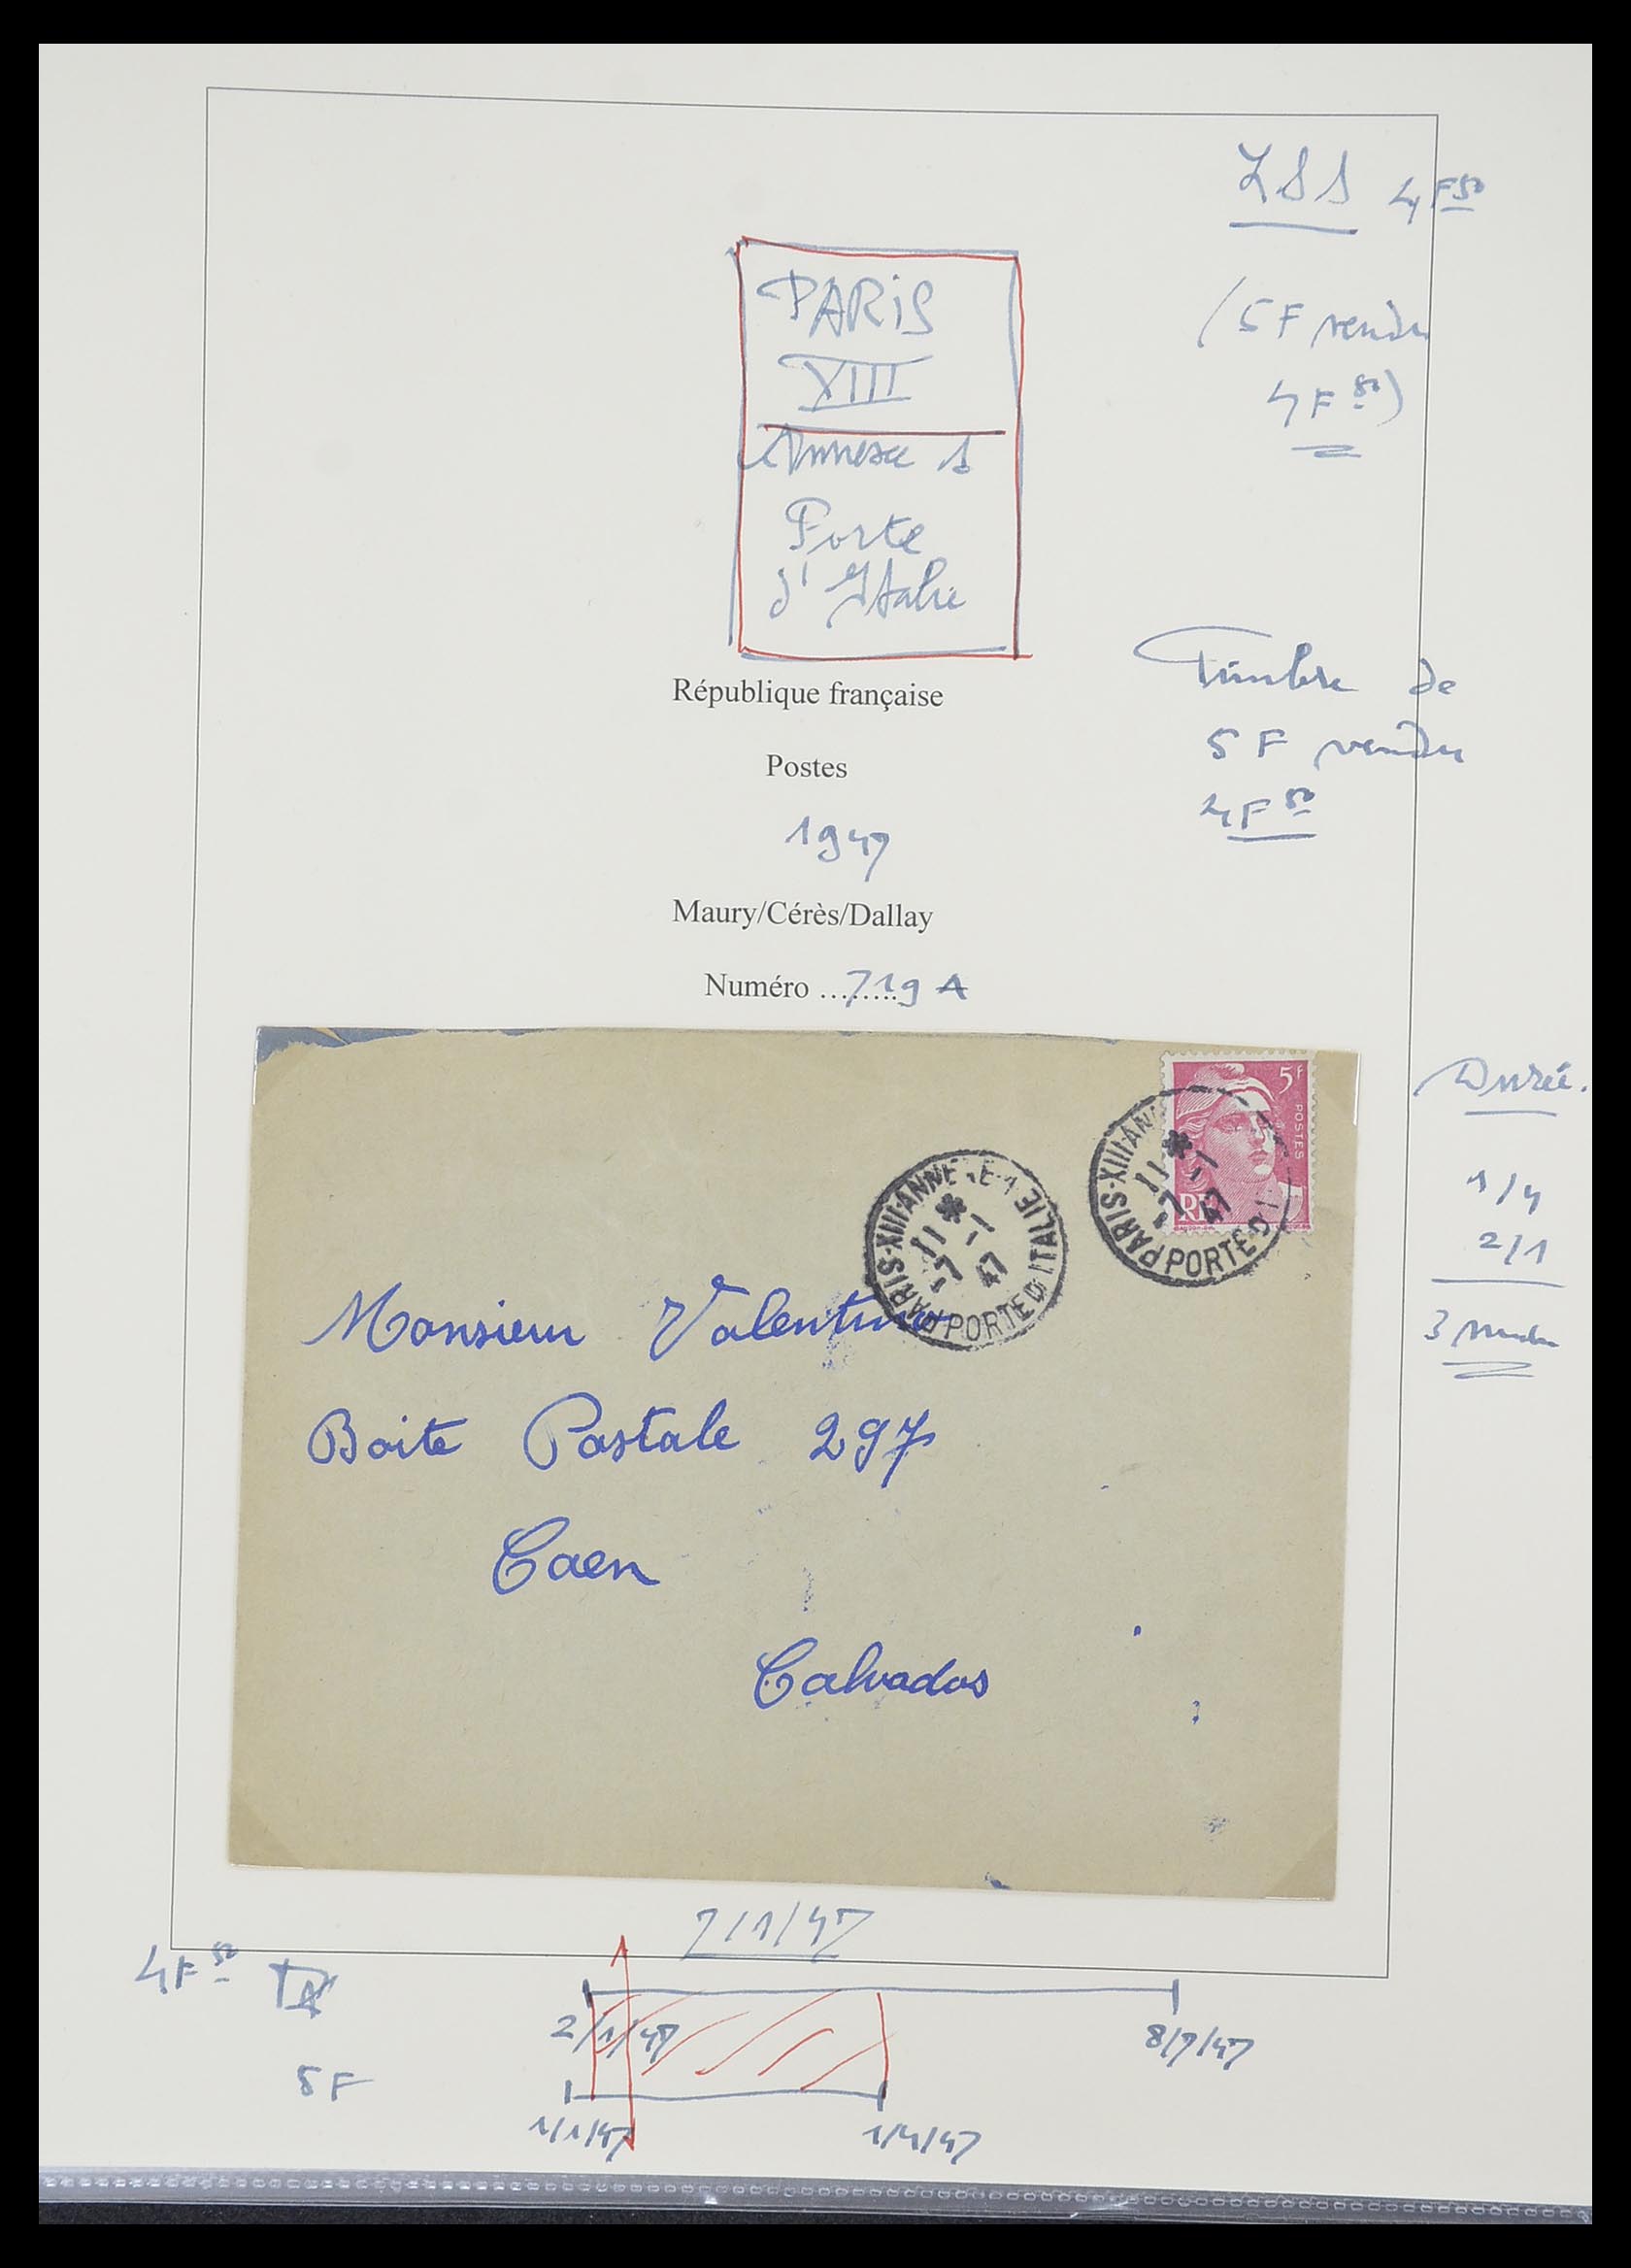 LSS 4F50
PARIS
XIII
Annexe 1
Porte
d'Italie
(5F vendu
4F50)
République française
Postes
1947
Maury/Cérès/Dallay
Numéro ........719 A
Timbre de
5F vendu
4F50
5F
POSTES
RF
PARIS·XIII ANN
11 *
-7 -1
47
PORTE D'I
PARIS·XIII ANNEXE 1
11 *
-7 -1
47
PORTE D'ITALIE
Monsieur Valentin
Boite Postale 297
Caen
Calvados
Durée.
1/4
2/1
3 mois
7/1/47
4F50
2/1/47 8/7/47
5F
1/1/47 1/4/47